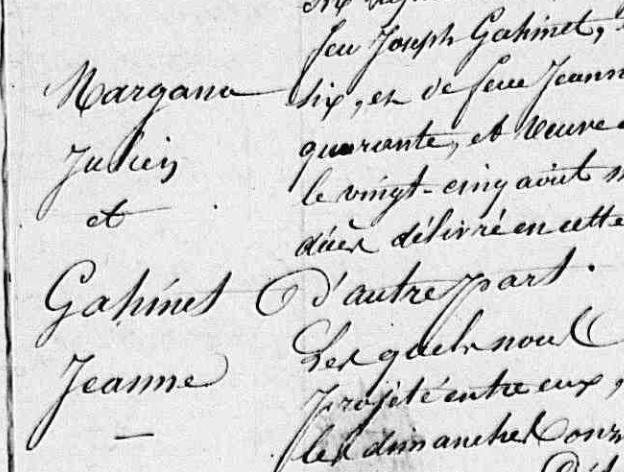 Margana
Julien
et
Gahinet
Jeanne
feu Joseph Gahinet,
six, et de feue Jeann
quarante, et veuve
le vingt-cinq août
décès délivré en cette
d'autre part.
Les quels nous
projeté entre eux,
les dimanches onz